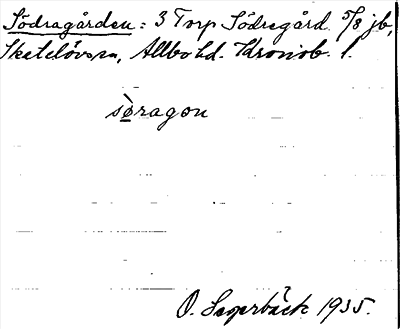 Södragården: 3 Torp Södregård 5/8 jb,
Skatelövs sn, Allbo hd. Kronob. l.
sø̀ragon
O. Sagerbäck 1935.